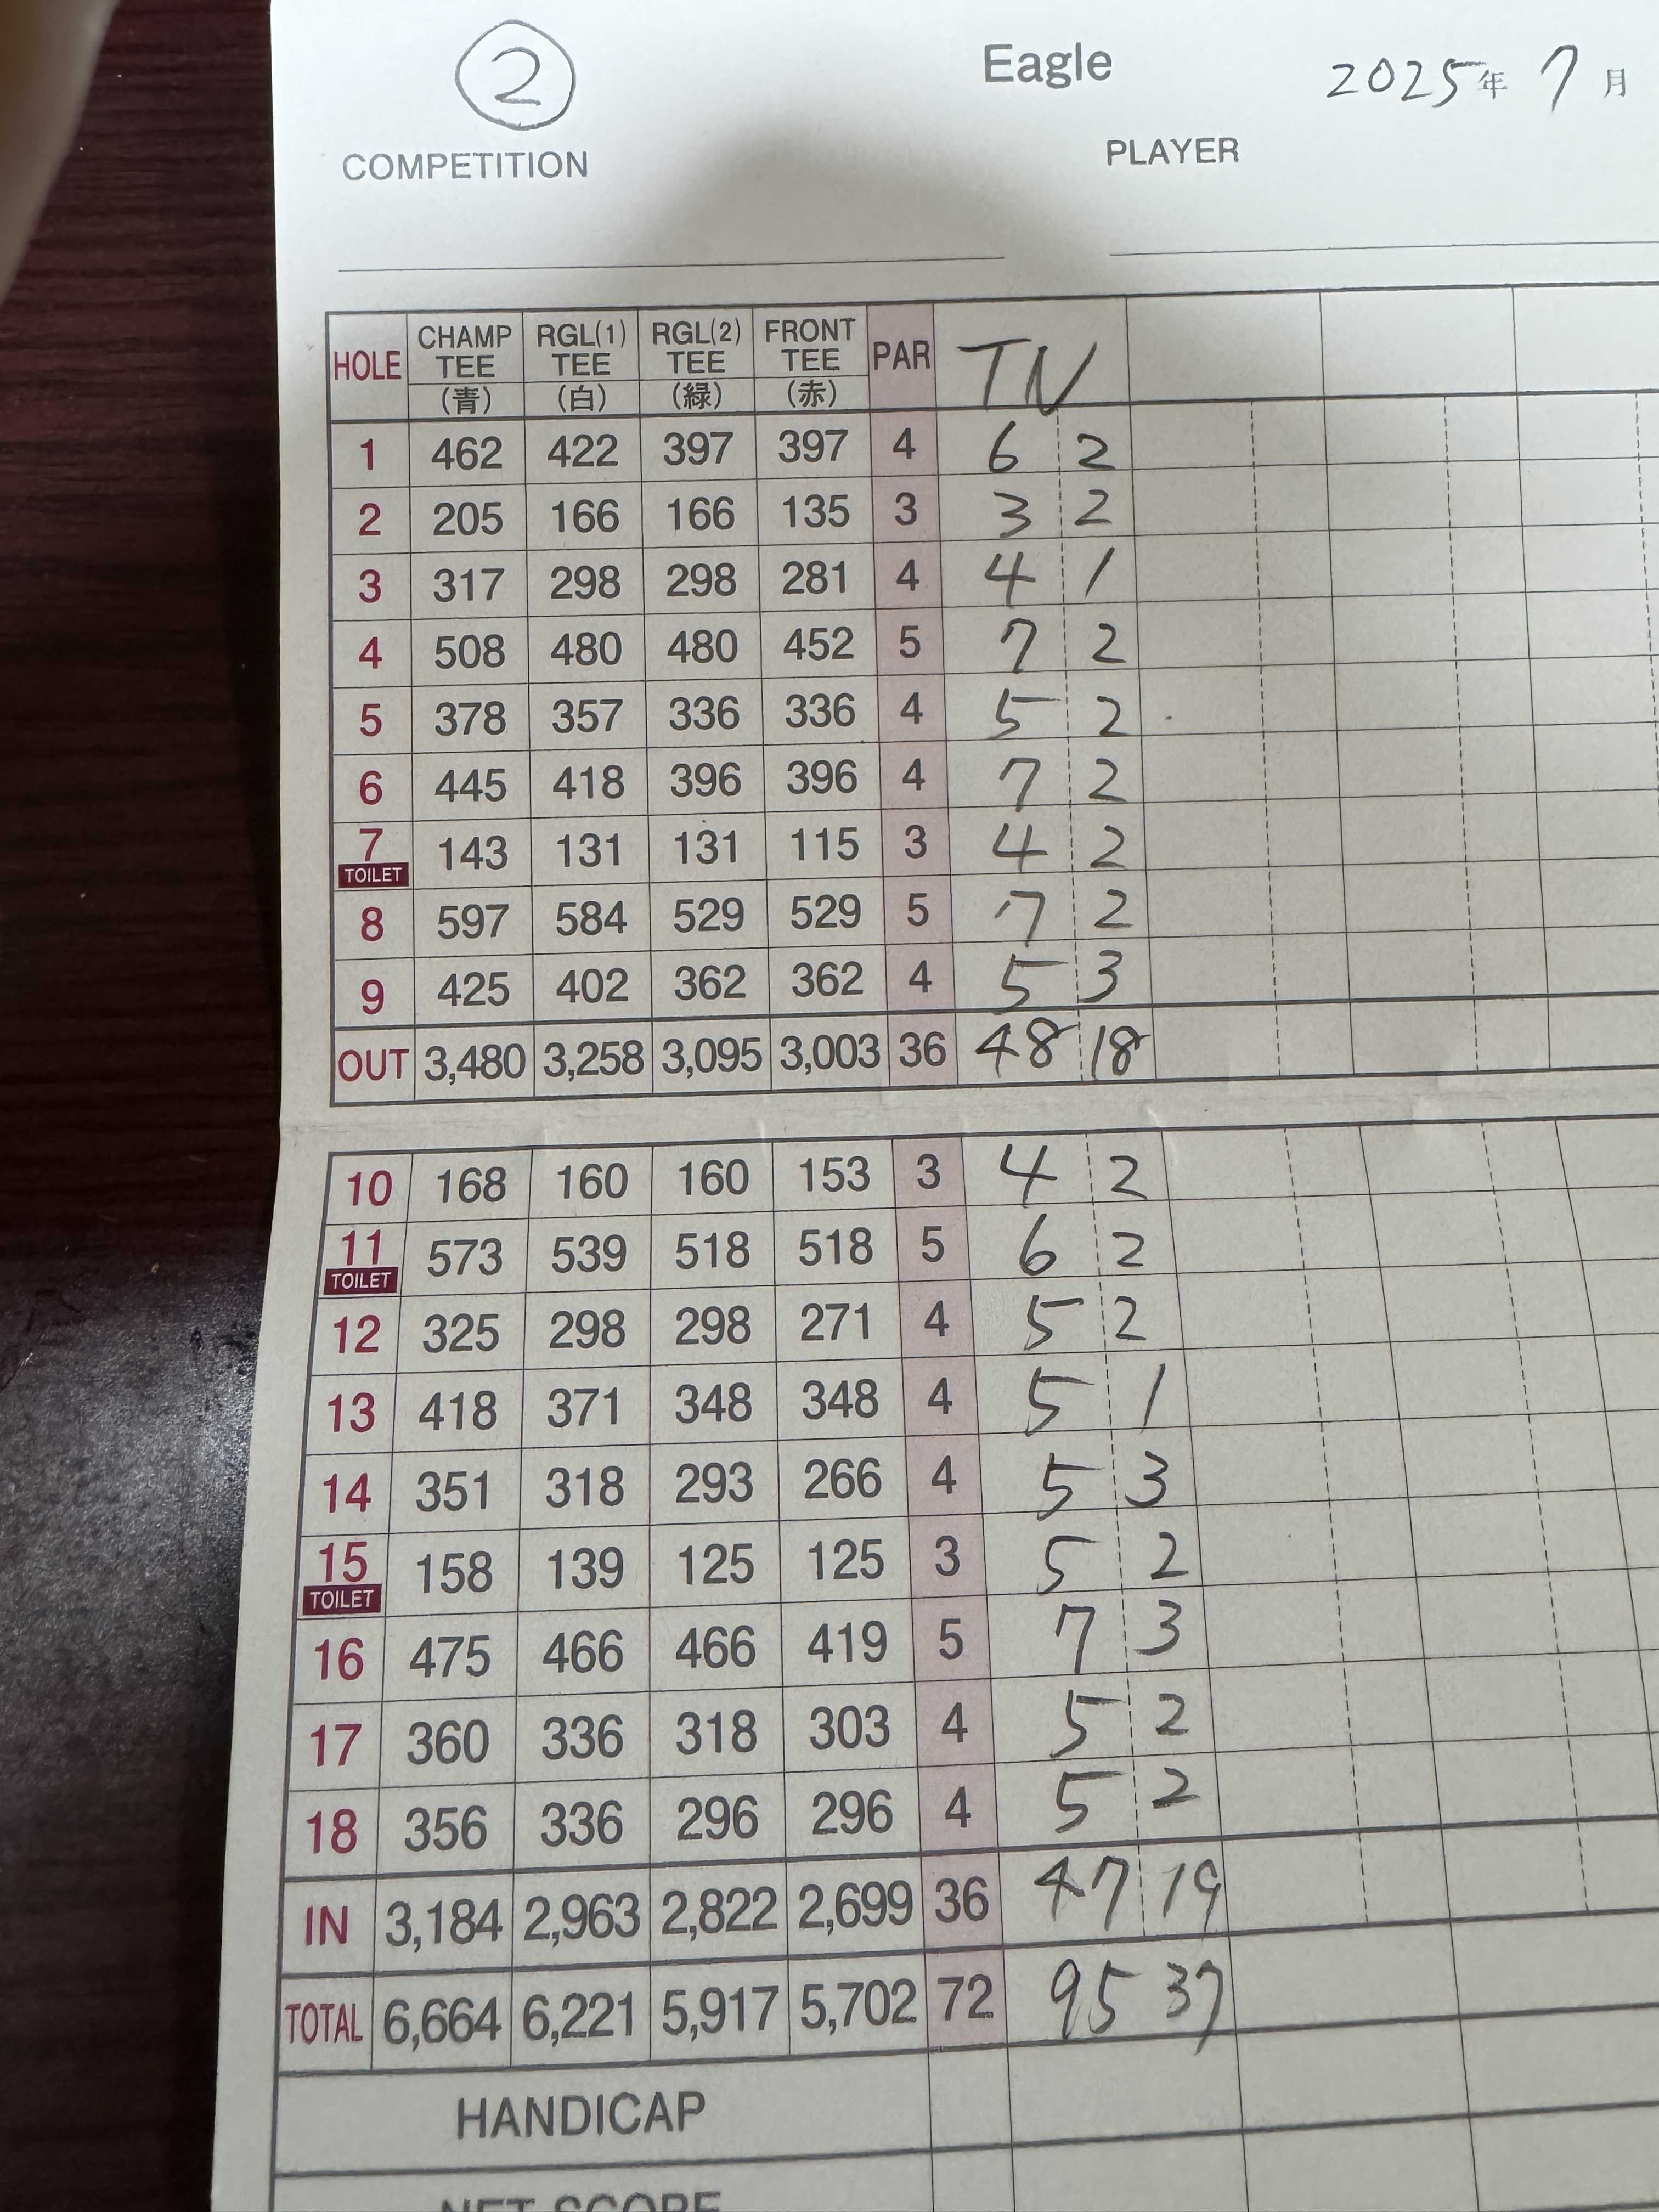 ②
Eagle
2025年 7月
COMPETITION
PLAYER
HOLE CHAMP TEE (青) RGL(1) TEE (白) RGL(2) TEE (緑) FRONT TEE (赤) PAR TN
1 462 422 397 397 4 6 2
2 205 166 166 135 3 3 2
3 317 298 298 281 4 4 1
4 508 480 480 452 5 7 2
5 378 357 336 336 4 5 2
6 445 418 396 396 4 7 2
7 TOILET 143 131 131 115 3 4 2
8 597 584 529 529 5 7 2
9 425 402 362 362 4 5 3
OUT 3,480 3,258 3,095 3,003 36 48 18
10 168 160 160 153 3 4 2
11 TOILET 573 539 518 518 5 6 2
12 325 298 298 271 4 5 2
13 418 371 348 348 4 5 1
14 351 318 293 266 4 5 3
15 TOILET 158 139 125 125 3 5 2
16 475 466 466 419 5 7 3
17 360 336 318 303 4 5 2
18 356 336 296 296 4 5 2
IN 3,184 2,963 2,822 2,699 36 47 19
TOTAL 6,664 6,221 5,917 5,702 72 95 37
HANDICAP
NET SCORE